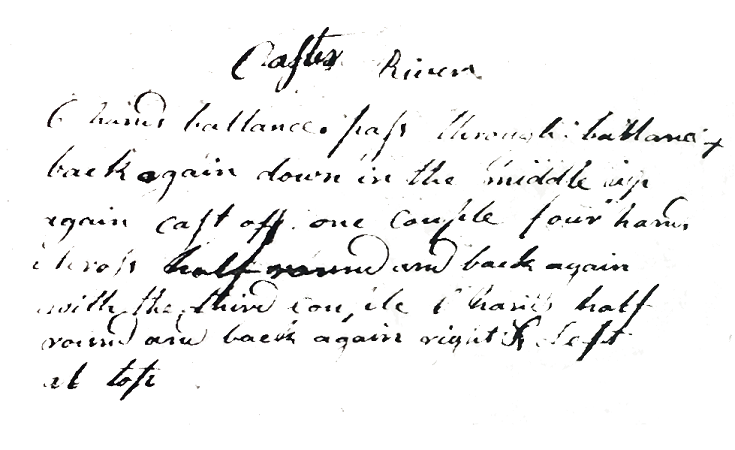 Caster River
6 hands ballance. pass through: ballance &
back again down in the middle up
again cast off. one couple four hands
across half round and back again
with the third couple 6 hands half
round and back again right & left
at top